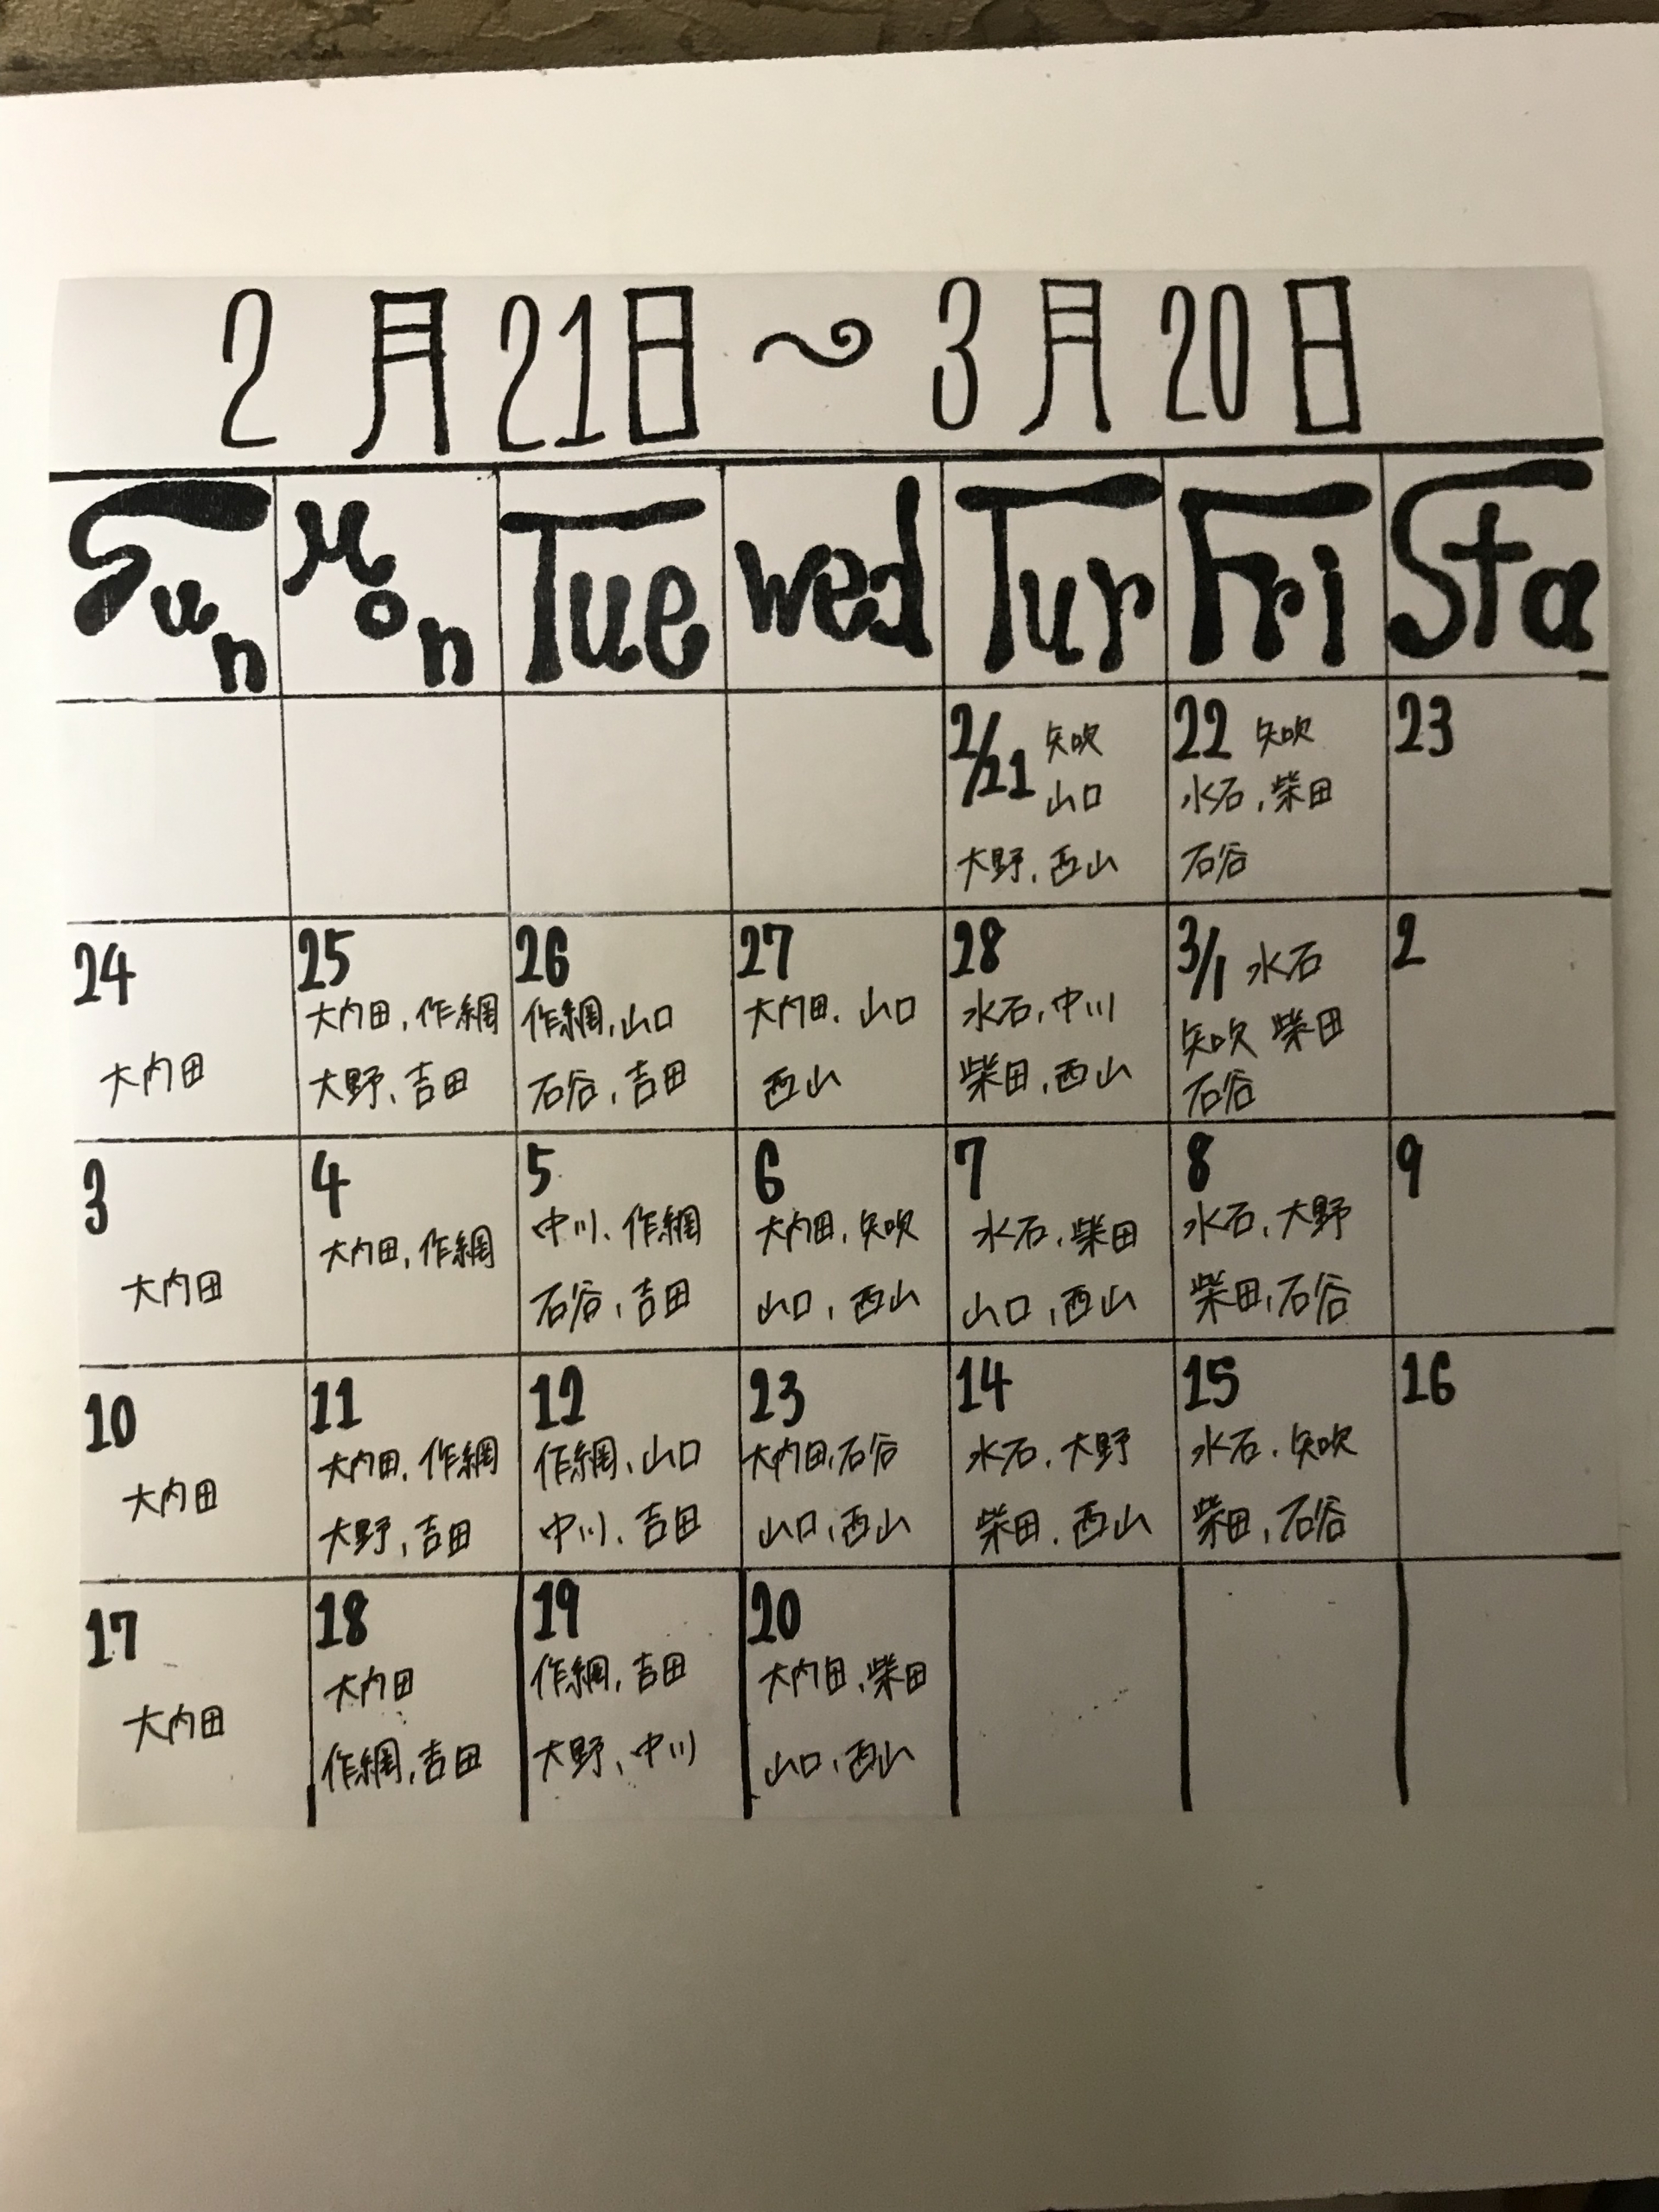 2月21日～3月20日
Sun Mon Tue wed Tur Fri Sta
2/21 矢吹
山口
大野、西山
22 矢吹
水石、柴田
石谷
23
24
大内田
25
大内田、作網
大野、吉田
26
作網、山口
石谷、吉田
27
大内田、山口
西山
28
水石、中川
柴田、西山
3/1 水石
矢吹 柴田
石谷
2
3
大内田
4
大内田、作網
5
中川、作網
石谷、吉田
6
大内田、矢吹
山口、西山
7
水石、柴田
山口、西山
8
水石、大野
柴田、石谷
9
10
大内田
11
大内田、作網
大野、吉田
12
作網、山口
中川、吉田
23
大内田、石谷
山口、西山
14
水石、大野
柴田、西山
15
水石、矢吹
柴田、石谷
16
17
大内田
18
大内田
作網、吉田
19
作網、吉田
大野、中川
20
大内田、柴田
山口、西山